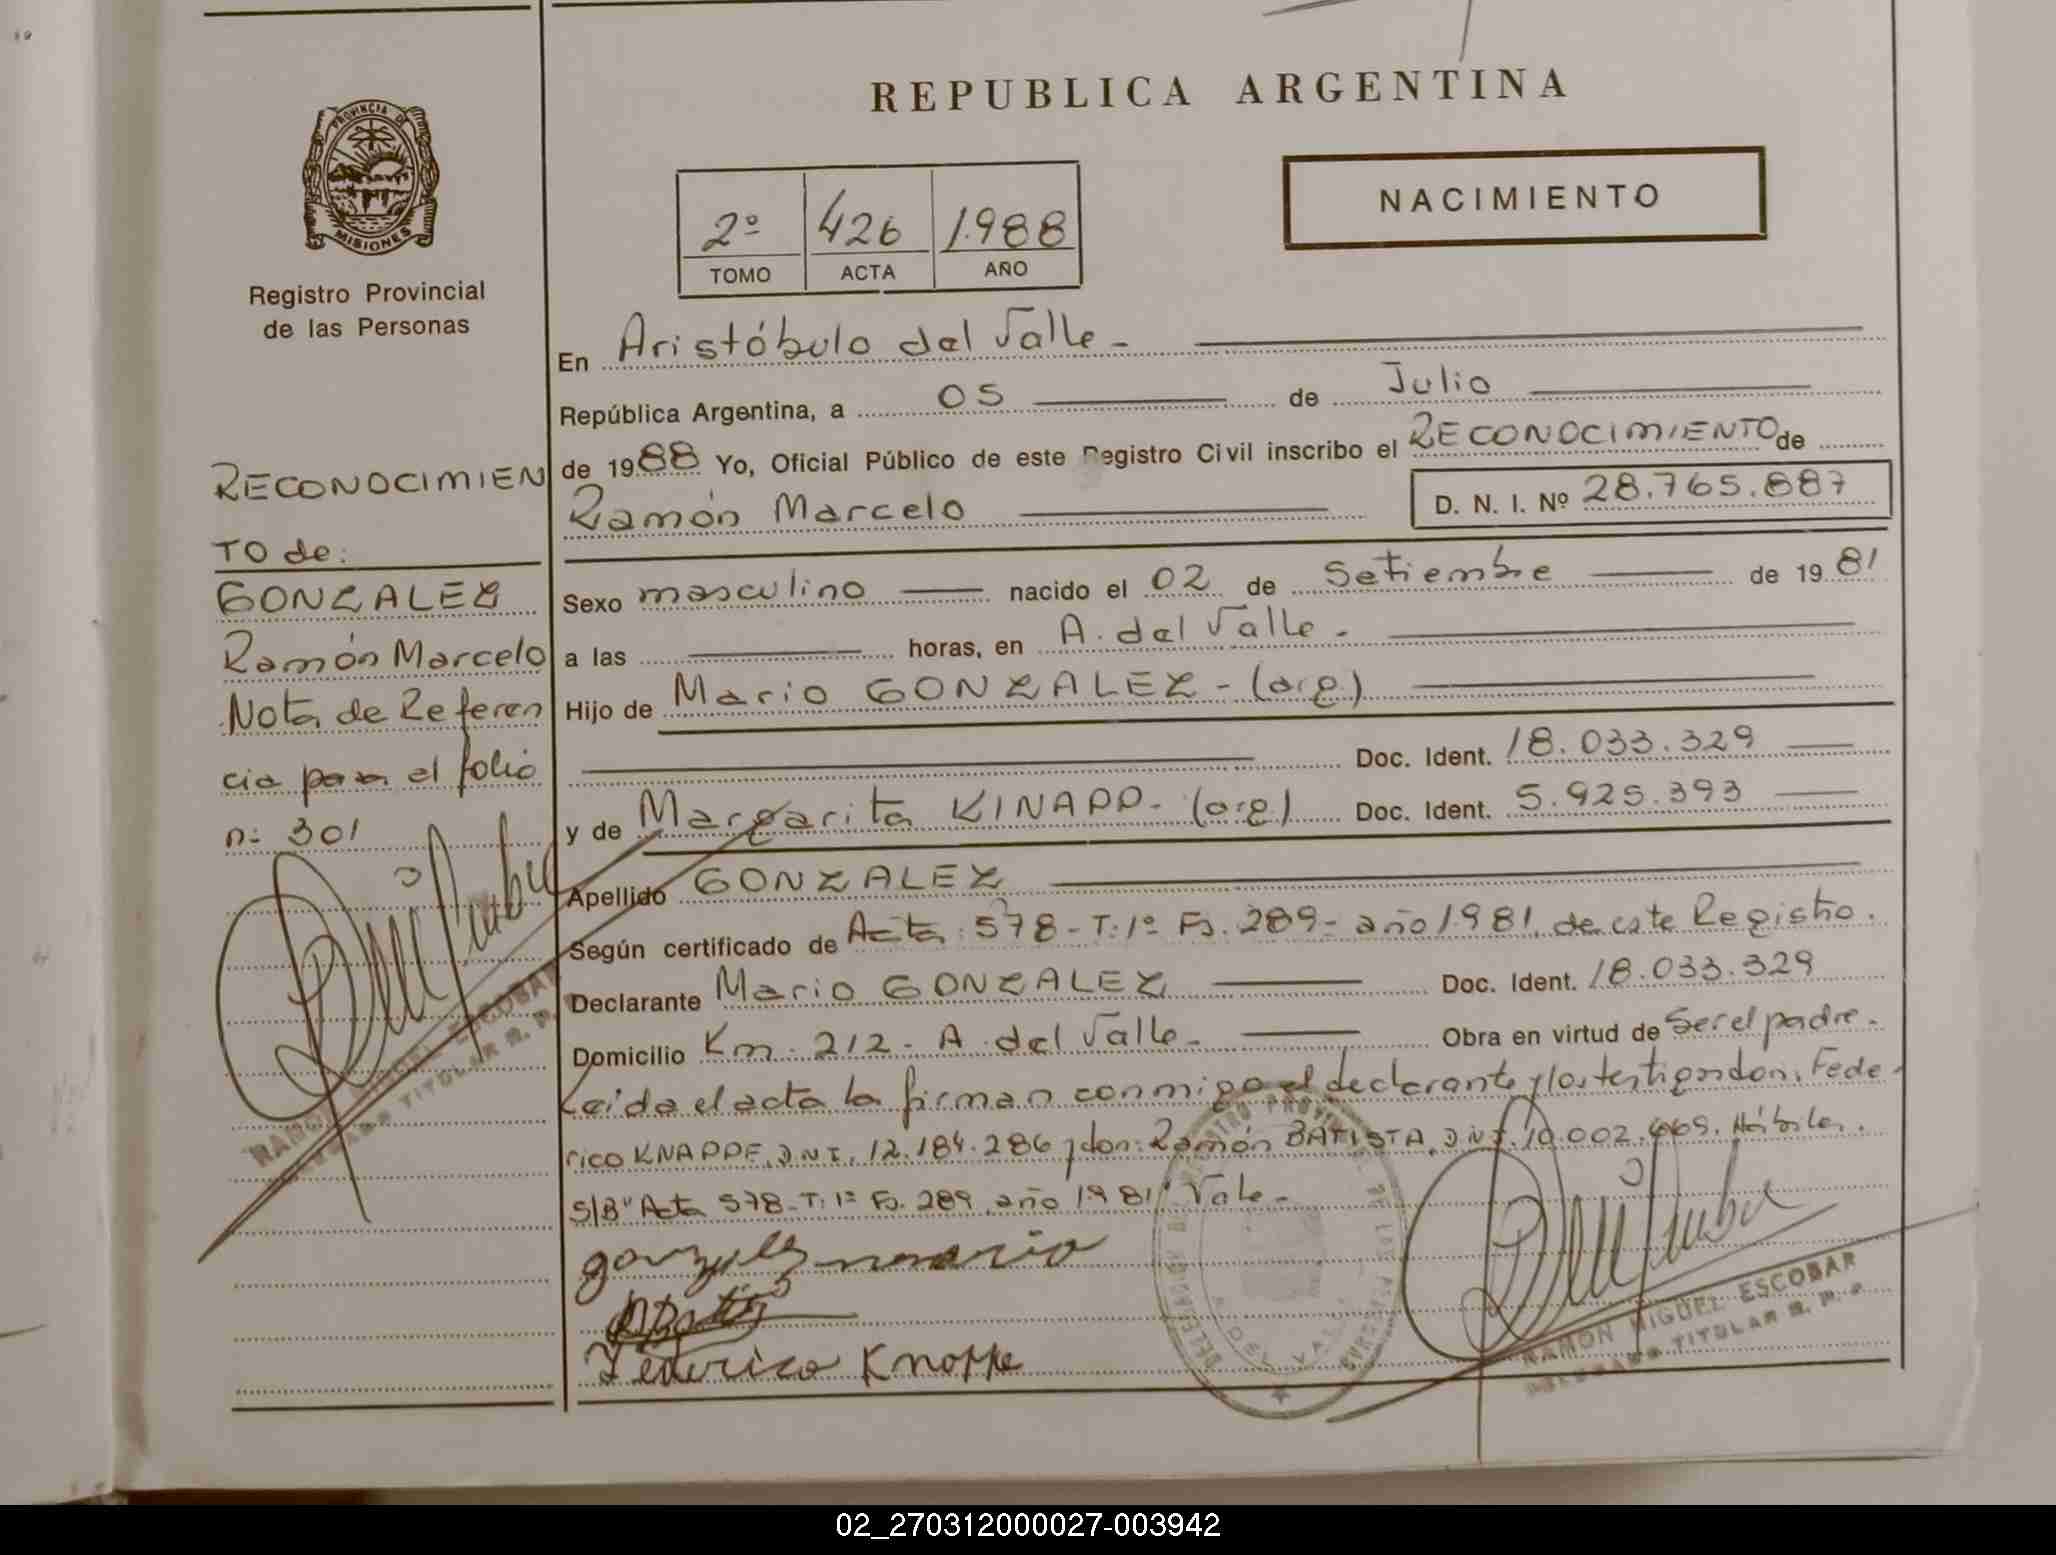 REPUBLICA ARGENTINA
PROVINCIA DE
MISIONES
Registro Provincial
de las Personas
NACIMIENTO
2º 426 1.988
TOMO ACTA AÑO
En Aristóbulo del Valle -
República Argentina, a 05 de Julio
de 1988 Yo, Oficial Público de este Registro Civil inscribo el RECONOCIMIENTO de
Ramón Marcelo D. N. I. Nº 28.765.887
Sexo masculino nacido el 02 de Setiembre de 1981
a las horas, en A. del Valle -
Hijo de Mario GONZALEZ - (arg.)
Doc. Ident. 18.033.329
y de Margarita KINAPP - (arg) Doc. Ident. 5.925.393
Apellido GONZALEZ
Según certificado de Acta: 578 - T: 1º Fs. 289 - año 1981, de este Registro.
Declarante Mario GONZALEZ Doc. Ident. 18.033.329
Domicilio Km. 212 - A. del Valle - Obra en virtud de Ser el padre -
Leida el acta la firman conmigo el declarante y los testigos don: Fede-
rico KNAPPE, D.N.I. 12.184.286 y don: Ramón BATISTA, D.N.I. 10.002.669. Hábiles.
S/B" Acta 578 - T: 1º Fs. 289, año 1981" Vale -
gonzalez mario
Federico Knappe
RECONOCIMIEN
TO de:
GONZALEZ
Ramón Marcelo
Nota de Referen
cia para el folio
n: 301
RAMON MIGUEL ESCOBAR
DELEGADO TITULAR R. P. P.
RAMON MIGUEL ESCOBAR
DELEGADO TITULAR R. P. P.
02_270312000027-003942